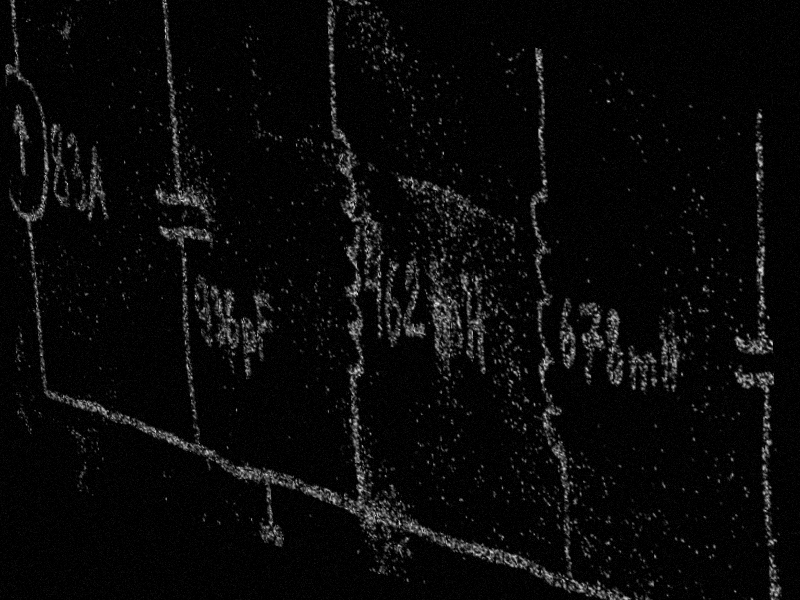 83A
936pF
462mH
678mH